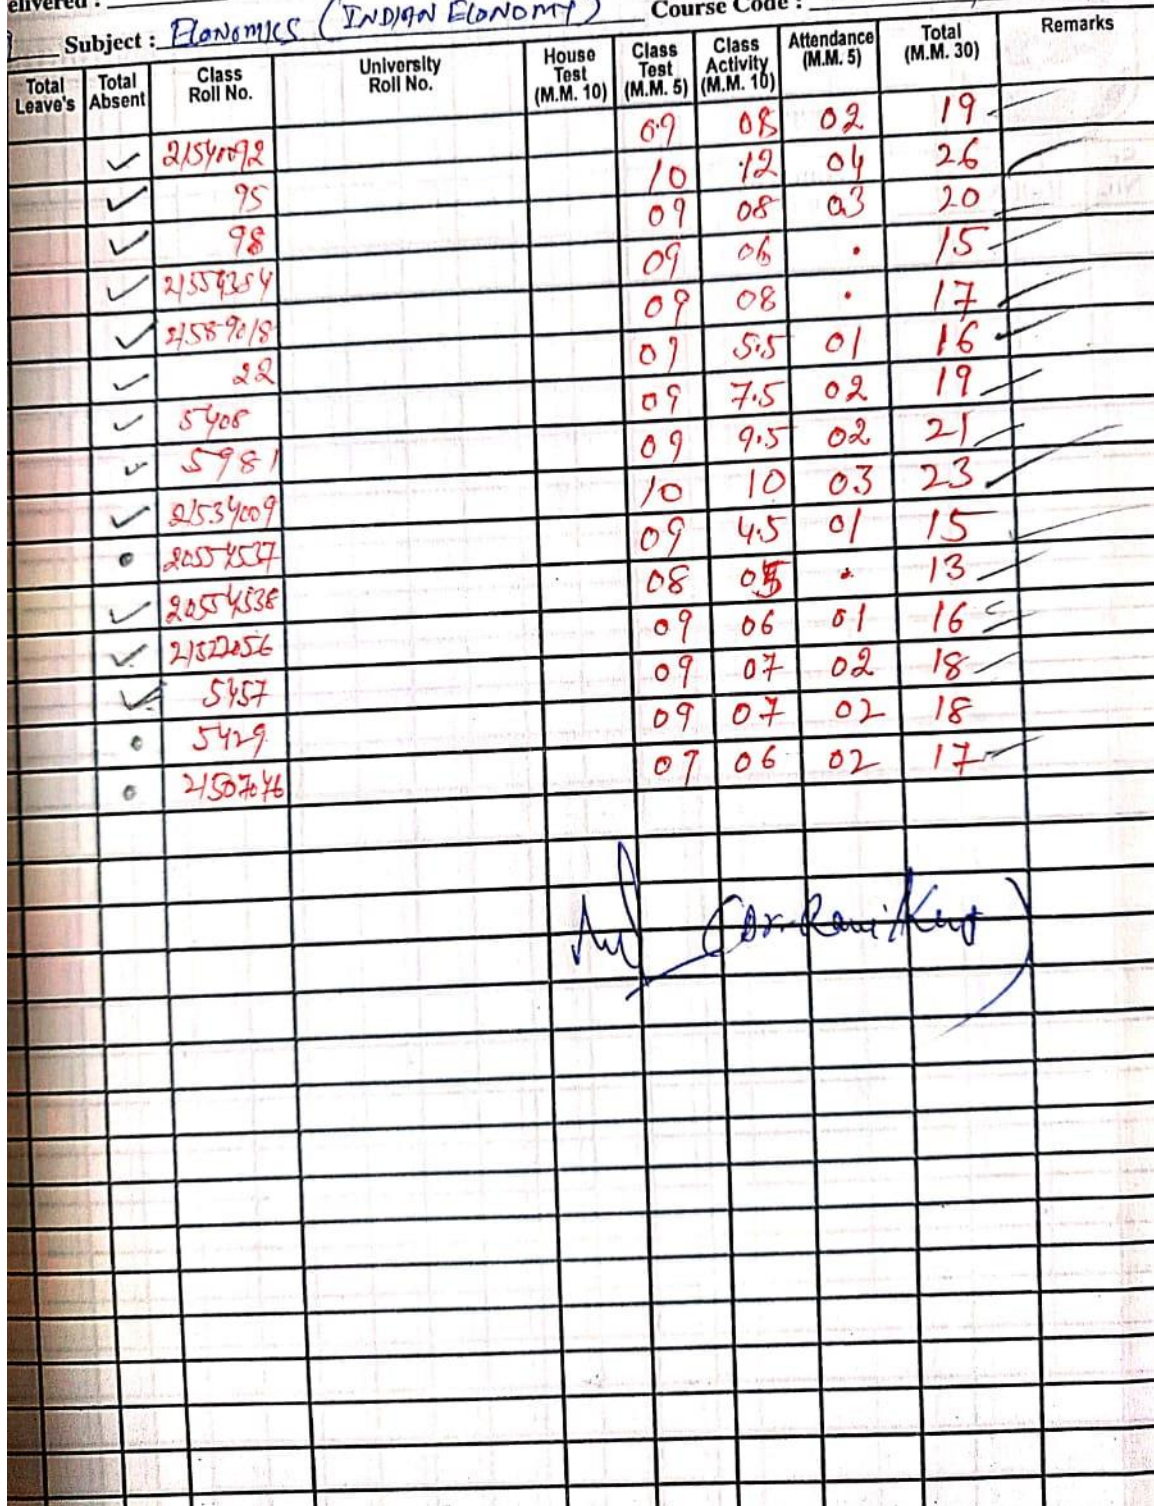 elivered :
Subject : ECONOMICS (INDIAN ECONOMY) Course Code :
Total Leave's Total Absent Class Roll No. University Roll No. House Test (M.M. 10) Class Test (M.M. 5) Class Activity (M.M. 10) Attendance (M.M. 5) Total (M.M. 30) Remarks
✓ 21540092 09 08 02 19
✓ 95 10 12 04 26
✓ 98 09 08 03 20
✓ 21554354 09 06 . 15
✓ 21589018 09 08 . 17
✓ 22 09 5.5 01 16
✓ 5408 09 7.5 02 19
✓ 5981 09 9.5 02 21
✓ 21534009 10 10 03 23
• 20554537 09 4.5 01 15
✓ 20554538 08 05 . 13
✓ 21522056 09 06 01 16
✓ 5457 09 07 02 18
• 5429 09 07 02 18
• 21507076 09 06 02 17
(Dr. Ravi Kant)